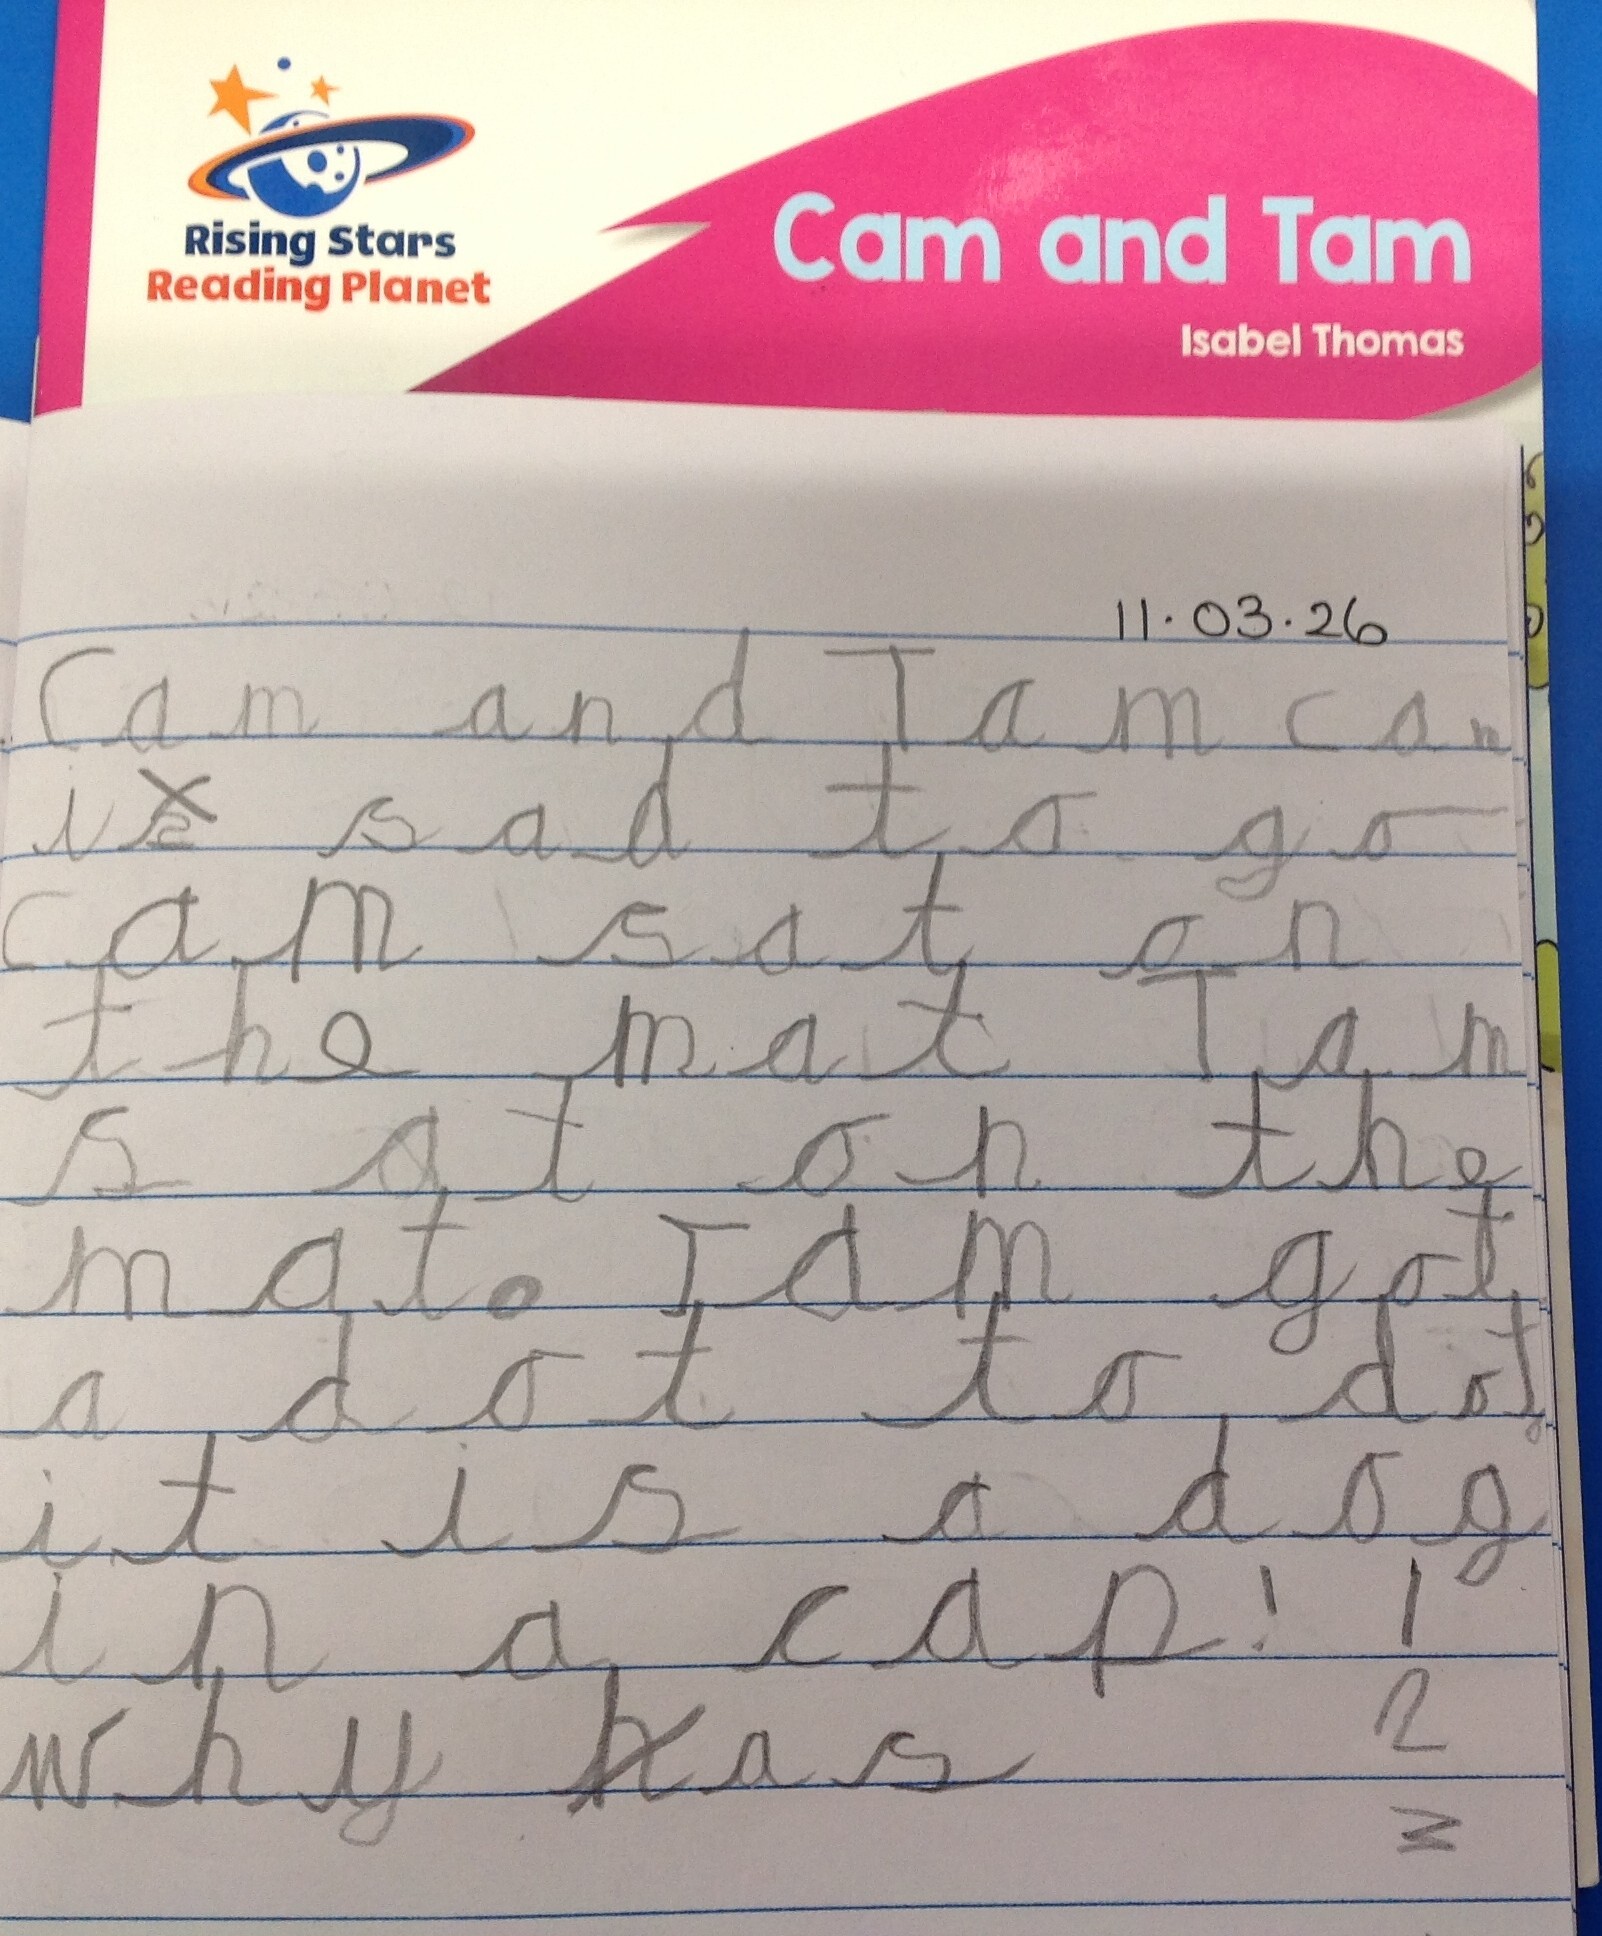 Rising Stars
Reading Planet
Cam and Tam
Isabel Thomas
11.03.26
Cam and Tam can
is sad to go
cam sat on
the mat Tam
sat on the
mat. Tam got
a dot to dot
it is a dog
in a cap! 1
why has 2
3